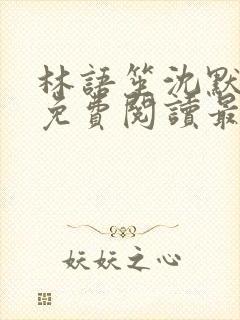 林語笙沈默
免費閱讀最
妖妖之心